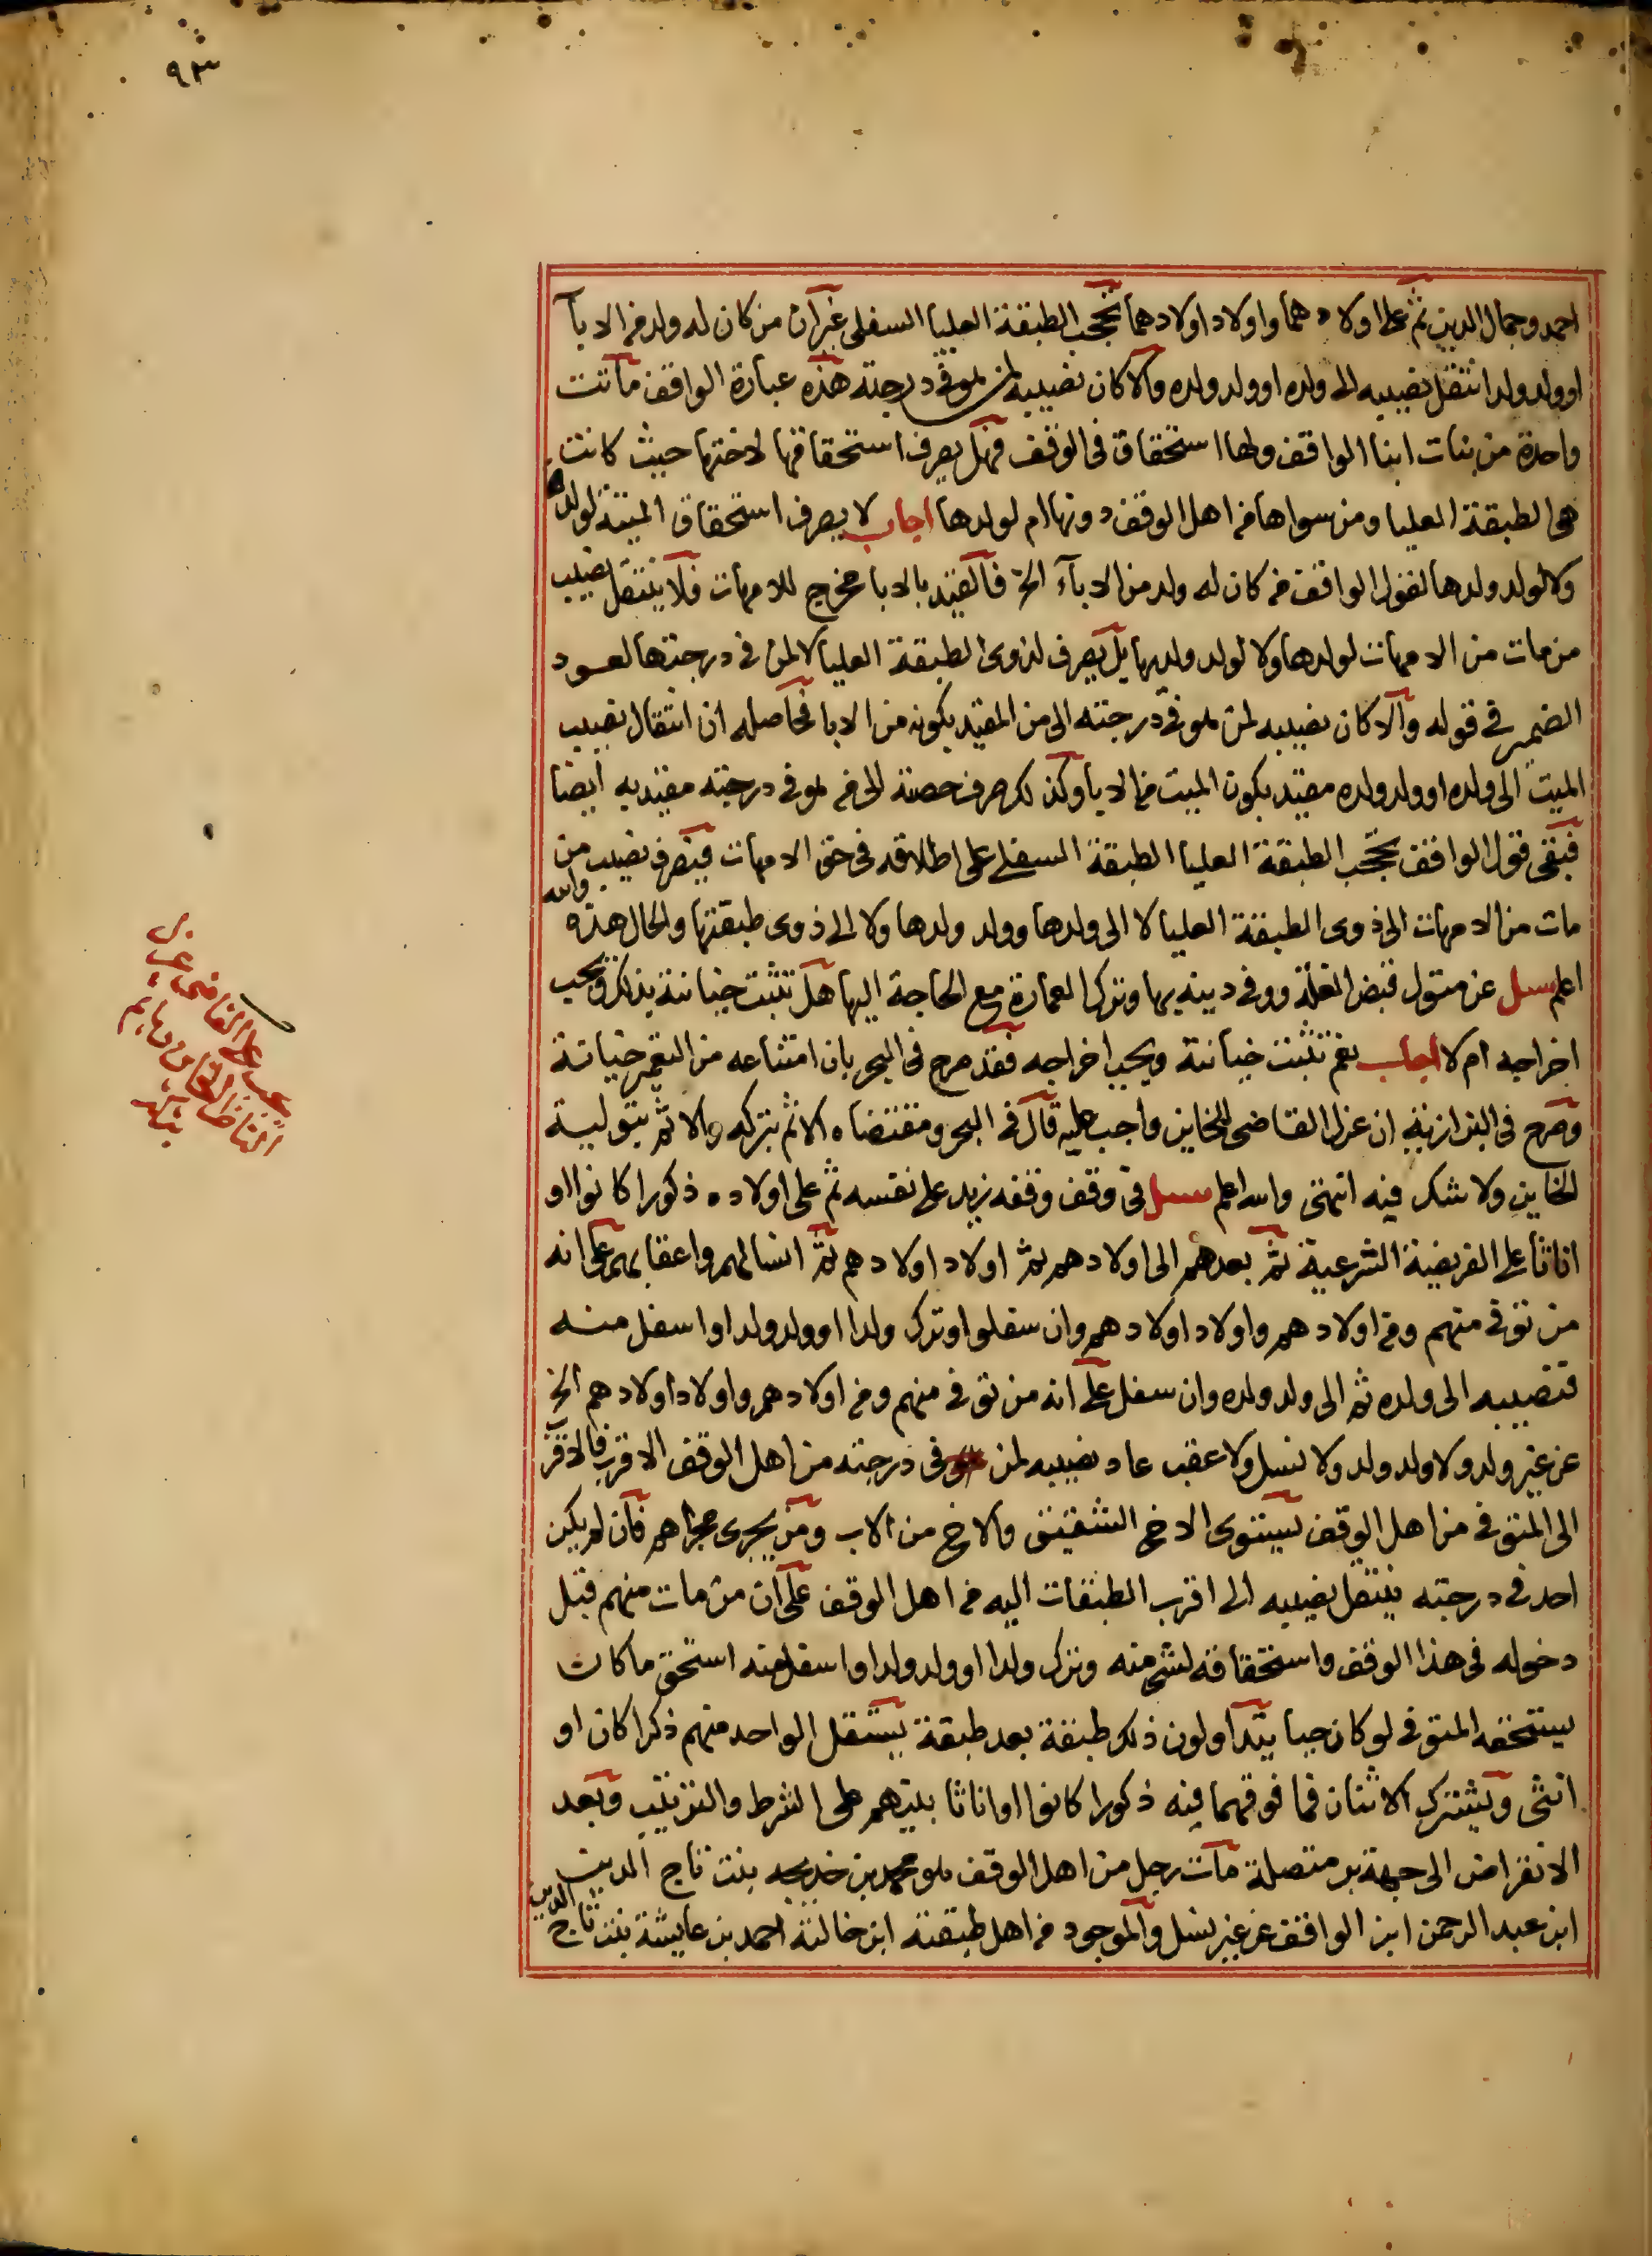 ٩٣
احمد وجمال الدين ثم على اولادهما واولاد اولادهما تحجب الطبقة العليا السفلى غير ان من كان له ولد من الابآ
او ولد ولد انتقل نصيبه الى ولده او ولد ولده والا كان نصيبه لمن هو فى درجته هذه عبارة الواقف ماتت
واحدة من بنات ابنا الواقف ولها استحقاق فى الوقف فهل يصرف استحقاقها لاختها حيث كانت
هى الطبقة العليا ومن سواها من اهل الوقف دونها ام لولدها اجاب لا يصرف استحقاق الميتة لولدها
ولا لولد ولدها لقول الواقف من كان له ولد من الابآء الخ فالقيد بالابا مخرج للامهات فلا ينتقل نصيب
من مات من الامهات لولدها ولا لولد ولدها بل يصرف لذوى الطبقة العليا لا لمن فى درجتها لعود
الضمير فى قوله والا كان نصيبه لمن هو فى درجته الى من المقيد بكونه من الابا فحاصله ان انتقال نصيب
الميت الى ولده او ولد ولده مقيد بكون الميت من الابا وكذلك صرف حصته الى من هو فى درجته مقيد به ايضا
فبقى قول الواقف تحجب الطبقة العليا الطبقة السفلى على اطلاقه فى حق الامهات فيصرف نصيب من
مات من الامهات الى ذوى الطبقة العليا لا الى ولدها وولد ولدها ولا الى ذوى طبقتها والحال هذه والله
اعلم سئل عن متول قبض الغلة ووفى دينه بها وترك العمارة مع الحاجة اليها هل تثبت خيانته بذلك ويجب
اخراجه ام لا اجاب نعم تثبت خيانته ويجب اخراجه فقد صرح فى البحر بان امتناعه من التعمير خيانة
وصرح فى البزازية ان عزل القاضى للخاين واجب عليه قال فى البحر ومقتضاه الاثم بتركه والاثم بتولية
الخاين ولا شك فيه انتهى والله اعلم سئل فى وقف وقفه زيد على نفسه ثم على اولاده ذكورا كانوا او
اناثا على الفريضة الشرعية ثم بعدهم الى اولادهم ثم اولاد اولادهم ثم انسالهم واعقابهم على انه
من توفى منهم ومن اولادهم واولاد اولادهم وان سفلوا وترك ولدا او ولد ولد او اسفل منه
فنصيبه الى ولده ثم الى ولد ولده وان سفل على انه من توفى منهم ومن اولادهم واولاد اولادهم الخ
عن غير ولد ولا ولد ولد ولا نسل ولا عقب عاد نصيبه لمن هو فى درجته من اهل الوقف الاقرب فالاقرب
الى المتوفى من اهل الوقف يستوى الاخ الشقيق والاخ من الاب ومن يجرى مجراهم فان لم يكن
احد فى درجته ينتقل نصيبه الى اقرب الطبقات اليه من اهل الوقف على ان من مات منهم قبل
دخوله فى هذا الوقف واستحقاقه لشئ منه وترك ولدا او ولد ولد او اسفل منه استحق ما كان
يستحقه المتوفى لو كان حيا يتداولون ذلك طبقة بعد طبقة يستقل الواحد منهم ذكرا كان او
انثى ويشترك الاثنان فما فوقهما فيه ذكورا كانوا او اناثا بينهم على الشرط والترتيب وبعد
الانقراض الى جهة بر متصلة مات رجل من اهل الوقف هو محمد بن خديجه بنت تاج الدين
ابن عبد الرحمن ابن الواقف عن غير نسل والموجود من اهل طبقته ابن خالته احمد بن عايشة بنت تاج الدين
يجب على القاضى عزل
الناظر الخاين وياثم
بتركه